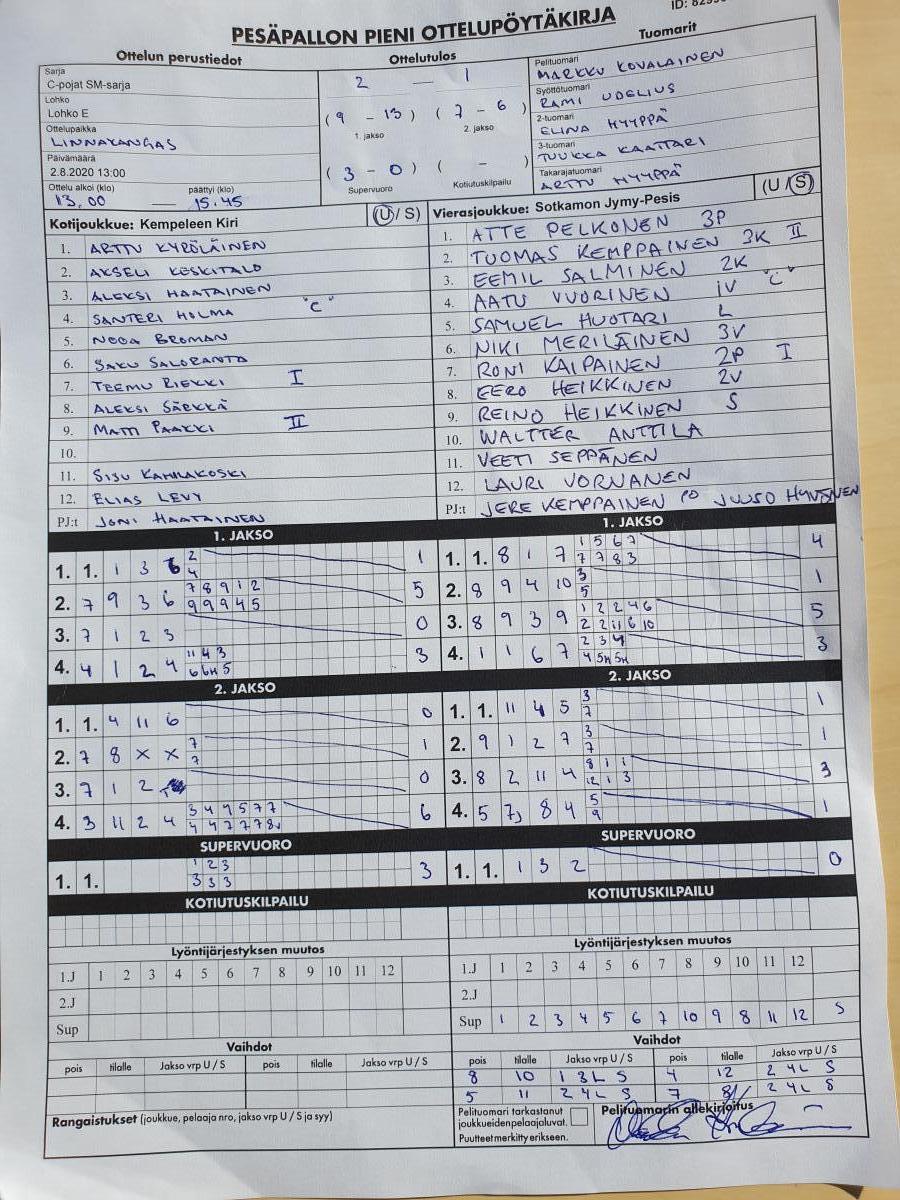 ID: 8299
PESÄPALLON PIENI OTTELUPÖYTÄKIRJA
Ottelun perustiedot
Sarja
C-pojat SM-sarja
Lohko
Lohko E
Ottelupaikka
LINNAKANGAS
Päivämäärä
2.8.2020 13:00
Ottelu alkoi (klo) päättyi (klo)
13,00 — 15.45
Ottelutulos
2 — 1
(9 - 13) (7 - 6)
1. jakso 2. jakso
(3 - 0) ( - )
Supervuoro Kotiutuskilpailu
Tuomarit
Pelituomari
MARKKU KOVALAINEN
Syöttötuomari
RAMI UDELIUS
2-tuomari
ELINA HYYPPÄ
3-tuomari
TUUKKA KAATTARI
Takarajatuomari
ARTTU HYYPPÄ
Kotijoukkue: Kempeleen Kiri (U / S)
1. ARTTU KYRÖLÄINEN
2. AKSELI KESKITALO
3. ALEKSI HAATAINEN
4. SANTERI HOLMA "C"
5. NOOA BROMAN
6. SAKU SALORANTA
7. TEEMU RIEKKI I
8. ALEKSI SÄRKKÄ
9. MATTI PAAKKI II
10.
11. SISU
12. ELIAS LEVY
PJ:t JONI HAATAINEN
Vierasjoukkue: Sotkamon Jymy-Pesis (U / S)
1. ATTE PELKONEN 3P
2. TUOMAS KEMPPAINEN 3K II
3. EEMIL SALMINEN 2K
4. AATU VUORINEN IV "C"
5. SAMUEL HUOTARI L
6. NIKI MERILÄINEN 3V
7. RONI KAIPAINEN 2P I
8. EERO HEIKKINEN 2V
9. REINO HEIKKINEN S
10. WALTTER ANTTILA
11. VEETI SEPPÄNEN
12. LAURI VORNANEN
PJ:t JERE KEMPPAINEN PO JUUSO HYVÖNEN
1. JAKSO
1. 1. 1 3 6 2 1
4
2. 7 9 3 6 7 8 9 1 2 5
9 9 9 4 5
3. 7 1 2 3 0
4. 4 1 2 4 11 4 3 3
6 6H 5
2. JAKSO
1. 1. 4 11 6 0
2. 7 8 X X 7 1
7
3. 7 1 2 0
4. 3 11 2 4 3 4 9 5 7 7 6
4 4 7 7 7 8
SUPERVUORO
1. 1. 1 2 3 3
3 3 3
KOTIUTUSKILPAILU
Lyöntijärjestyksen muutos
1.J 1 2 3 4 5 6 7 8 9 10 11 12
2.J
Sup
Vaihdot
pois tilalle Jakso vrp U / S pois tilalle Jakso vrp U / S
Rangaistukset (joukkue, pelaaja nro, jakso vrp U / S ja syy)
1. JAKSO
1. 1. 8 1 7 1 5 6 7 4
7 7 8 3
2. 8 9 4 10 3 1
5
3. 8 9 3 9 1 2 2 4 6 5
2 2 11 6 10
4. 1 1 6 7 2 3 4 3
4 5H 5H
2. JAKSO
1. 1. 11 4 5 3 1
7
2. 9 1 2 7 3 1
7
3. 8 2 11 4 8 1 1 3
12 1 3
4. 5 7 8 4 5 1
9
SUPERVUORO
1. 1. 1 3 2 0
KOTIUTUSKILPAILU
Lyöntijärjestyksen muutos
1.J 1 2 3 4 5 6 7 8 9 10 11 12
2.J
Sup 1 2 3 4 5 6 7 10 9 8 11 12 S
Vaihdot
pois tilalle Jakso vrp U / S pois tilalle Jakso vrp U / S
8 10 1 3L S 4 12 2 4L S
5 11 2 4L S 7 8/ 2 4L S
Pelituomari tarkastanut
joukkueidenpelaajaluvat.
Puutteet merkitty erikseen.
Pelituomarin allekirjoitus